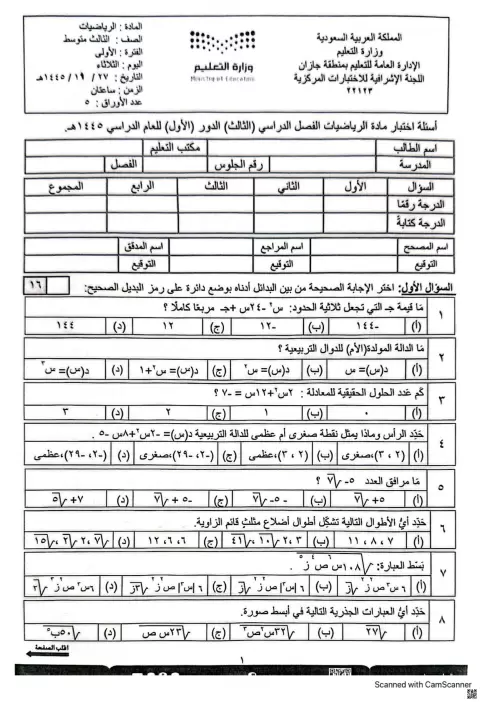 المملكة العربية السعودية
وزارة التعليم
الإدارة العامة للتعليم بمنطقة جازان
اللجنة الإشرافية للاختبارات المركزية
٢٢١٢٣
وزارة التعليم
Ministry of Education
المادة: الرياضيات
الصف: الثالث متوسط
الفترة: الأولى
اليوم: الثلاثاء
الزمن: ساعتان
عدد الأوراق: ٥
أسئلة اختبار مادة الرياضيات الفصل الدراسي (الثالث) الدور (الأول) للعام الدراسي ١٤٤٥هـ.
اسم الطالب مكتب التعليم
المدرسة رقم الجلوس الفصل
السؤال الأول الثاني الثالث الرابع المجموع
الدرجة رقمًا
الدرجة كتابةً
اسم المصحح اسم المراجع اسم المدقق
التوقيع التوقيع التوقيع
السؤال الأول: اختر الإجابة الصحيحة من بين البدائل أدناه بوضع دائرة على رمز البديل الصحيح: ١٦
١ مَا قيمة جـ التي تجعل ثلاثية الحدود: س٢ -٢٤س +جـ مربعًا كاملًا ؟
(أ) -١٤٤ (ب) -١٢ (ج) ١٢ (د) ١٤٤
٢ مَا الدالة المولدة(الأم) للدوال التربيعية ؟
(أ) د(س)= س (ب) د(س)= س٢ (ج) د(س)= س٢+١ (د) د(س)= س٣
٣ كَم عدد الحلول الحقيقية للمعادلة : ٢س٢+١٢س = -٧ ؟
(أ) ٠ (ب) ١ (ج) ٢ (د) ٣
٤ حَدِّد الرأس وماذا يمثل نقطة صغرى أم عظمى للدالة التربيعية د(س)= -٢س٢+٨س -٥ .
(أ) (٢ ،٣)،صغرى (ب) (٢ ،٣)،عظمى (ج) (-٢، -٢٩)،صغرى (د) (-٢، -٢٩)،عظمى
٥ مَا مرافق العدد ٥- √٧ ؟
(أ) ٥+ √٧ (ب) -٥ - √٧ (ج) -٥ + √٧ (د) ٧+ √٥
٦ حَدِّد أيُّ الأطوال التالية تشكّل أطوال أضلاع مثلثٍ قائم الزاوية.
(أ) ٧ ، ٨ ، ١١ (ب) ٢،٣، √١٠، √٤١ (ج) ٦ ، ٦ ، ١٢ (د)
٧ بَسِّط العبارة: √١٠٨س٥ ص٤ ز٦
(أ) (ب) (ج) (د)
٨ حَدِّد أي العبارات الجذرية التالية في أبسط صورة.
(أ) √٢٧ (ب) √٣٢س٢ص٣ (ج) √٢٣س ص (د) √٥٠ب٥
اقلب الصفحة
١
Scanned with CamScanner